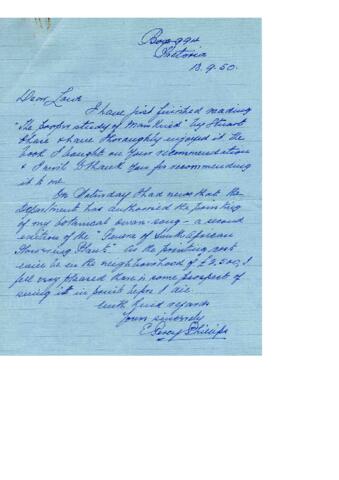 Box 994
Pretoria
13.9.50.
Dear Love
I have just finished reading
"The proper study of Mankind" by Stuart
Chase & have thoroughly enjoyed it the
book I bought on your recommendation
& I wish to thank you for recommending
it to me.
On Saturday I had news that the
Department has authorised the printing
of my botanical swan-song – a second
edition of the "Genera of South African
Flowering Plants". As the printing cost
will be in the neighbourhood of £2,500, I
feel very pleased there is some prospect of
seeing it in print before I die.
With kind regards
Yours sincerely
E Percy Phillips